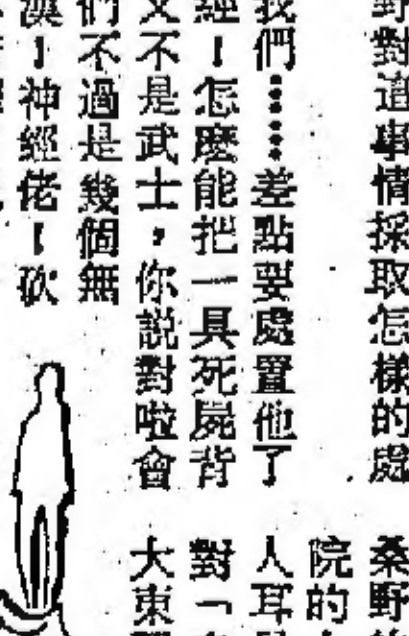 野對這事情採取怎樣的處
我們……差點要處置他了
經！怎麼能把一具死屍背
又不是武士，你説對啦會
們不過是幾個無
漢！神經佬！砍
桑野
院的
人耳
對「
大東